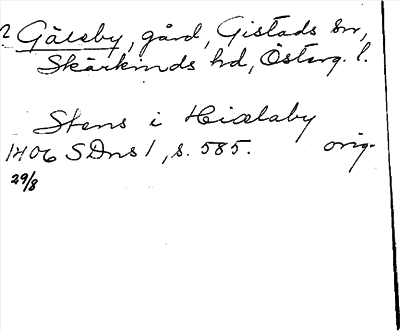 ? Gälsby, gård, Gistads sn,
Skärkinds hd, Österg. l.
Stens i Hiælaby
1406 SDns 1, s. 585. orig.
29/8